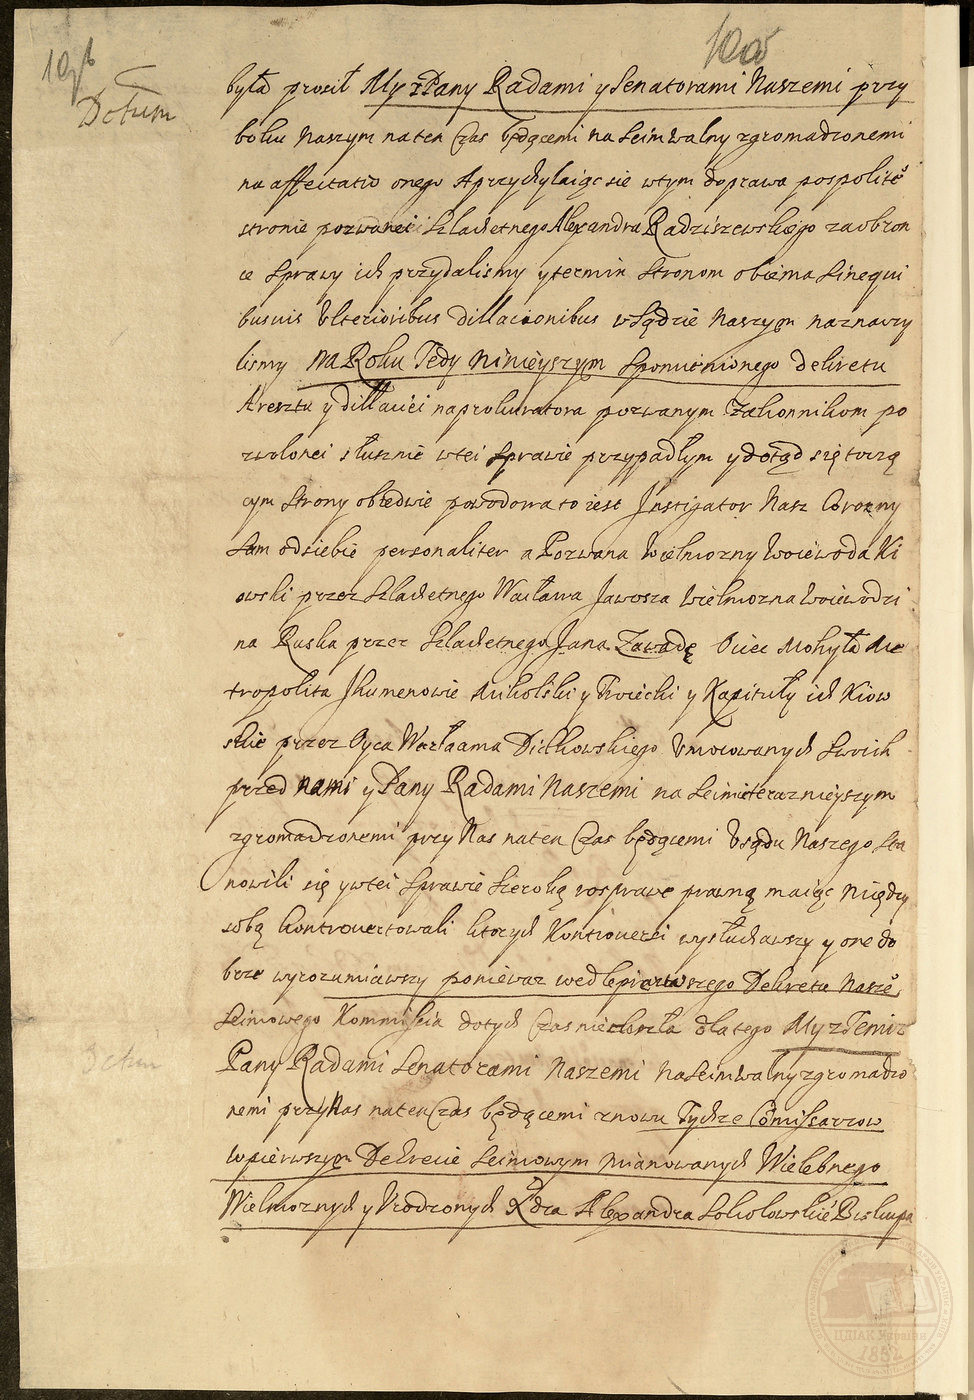 Dctum
była prosił My z Pany Radami y Senatorami Naszemi przy
boku Naszym na ten Czas będącemi na Seim walny zgromadzonemi
na affectatio onego A przychylaiąc sie w tym do prawa pospolite°
stronie pozwanei Szlachetnego Alexandra Radziszewskiego za obron
ce Sprawy ich przydalismy y termin Stronom obiema Sine qui
busuis Vlterioribus dillacionibus v Sądzie Naszym naznaczy
lismy Na Roku Tedy Ninieyszym Spomienionego dekretu
Aresztu y dillaciei na prokuratora pozwanym Zakonnikom po
zwolonei słusznie w tei Sprawie przypadłym y dotąd się toczą
cym Strony obiedwie powodowa to iest Instigator Nasz Coronny
Sam od siebie personaliter a Pozwana Wielmozny Woiewoda Ki
owski przez Szlachetnego Wacława Jawosza Wielmozna Woiewodzi
na Ruska przez Szlachetnego Jana Zawadę Ociec Mohyła Me
tropolita Ihumenowie Mikolski y Troiecki y Kapituły ich Kiow
skie przez Oyca Warłaama Dickowskiego Vmocowanych Swoich
przed Nami y Pany Radami Naszemi na Seimie teraznieyszym
zgromadzonemi przy Nas na ten Czas będącemi V sądu Naszego Sta
nowili się y w tei Sprawie Szeroką rosprawę prawną maiąc Między
sobą kontrouertowali ktorych Kontrouersi wysłuchawszy y one do
brze wyrozumiawszy poniewaz wedle pierwszego Dekretu Nasze°
Seimowego Kommissia dotych Czas nie doszła dlatego My z Temiz
Pany Radami Senatorami Naszemi Na Seim Walny zgromadzo
nemi przy Nas na ten Czas będącemi znowu Tychze Comissarzow
w pierwszym Dekrecie Seimowym mianowanych Wielebnego
Wielmoznych y Vrodzonych Xdza Alexandra Sokolowskie° Biskupa
ЦДІАК України
1852